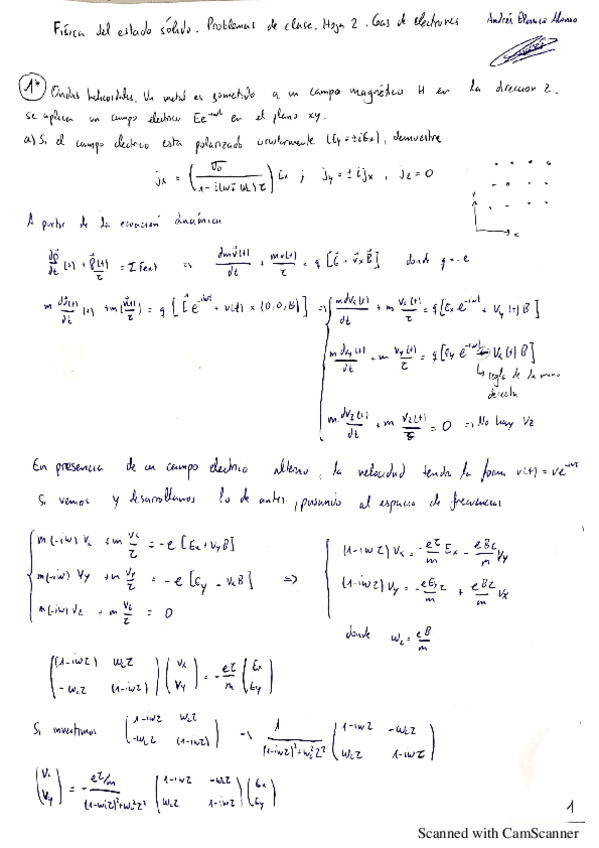 Física del estado sólido. Problemas de clase. Hoja 2. Gas de electrones
1* Ondas helicoidales. Un metal es sometido a un campo magnético H en la dirección z.
se aplica un campo electrico Ee^{-iωt} en el plano xy.
a) Si el campo electrico esta polarizado circularmente (Ey = ±iEx), demuestre
jx = (σ0 / 1-i(ω∓ωc)τ) Ex ; jy = ±ijx , jz = 0
A partir de la ecuación dinámica
dp⃗/dt (t) + p⃗(t)/τ = ΣFext ⇒ dmv⃗(t)/dt + mv(t)/τ = q [E⃗ + v⃗xB⃗] donde q = -e
m dv⃗(t)/dt + m v⃗(t)/τ = q [E⃗ e^{-iωt} + v(t) × (0,0,B)] ⇒ { m dvx(t)/dt + m vx(t)/τ = q [Ex e^{-iωt} + vy(t) B]
m dvy(t)/dt + m vy(t)/τ = q [Ey e^{-iωt} - vx(t) B]
↳ regla de la mano
derecha
m dvz(t)/dt + m vz(t)/τ = 0 ⇒ No hay vz
En presencia de un campo electrico alterno, la velocidad tendra la forma v(t) = ve^{-iωt}
Si vemos y desarrollamos lo de antes, pasando al espacio de frecuencias
{ m(-iω) vx + m vx/τ = -e [Ex + vy B]
m(-iω) vy + m vy/τ = -e [Ey - vx B] ⇒
m(-iω) vz + m vz/τ = 0
{ (1-iωτ) vx = -eτ/m Ex - eBτ/m vy
(1-iωτ) vy = -eEyτ/m + eBτ/m vx
donde ωc = eB/m
( (1-iωτ) ωcτ ; -ωcτ (1-iωτ) ) ( vx ; vy ) = - eτ/m ( Ex ; Ey )
Si invertimos ( 1-iωτ ωcτ ; -ωcτ (1-iωτ) ) → 1 / (1-iωτ)²+ωc²τ² ( 1-iωτ -ωcτ ; ωcτ 1-iωτ )
( vx ; vy ) = - eτ/m / (1-ωiτ)²+ωc²τ² ( 1-iωτ -ωcτ ; ωcτ 1-iωτ ) ( Ex ; Ey )
1
Scanned with CamScanner